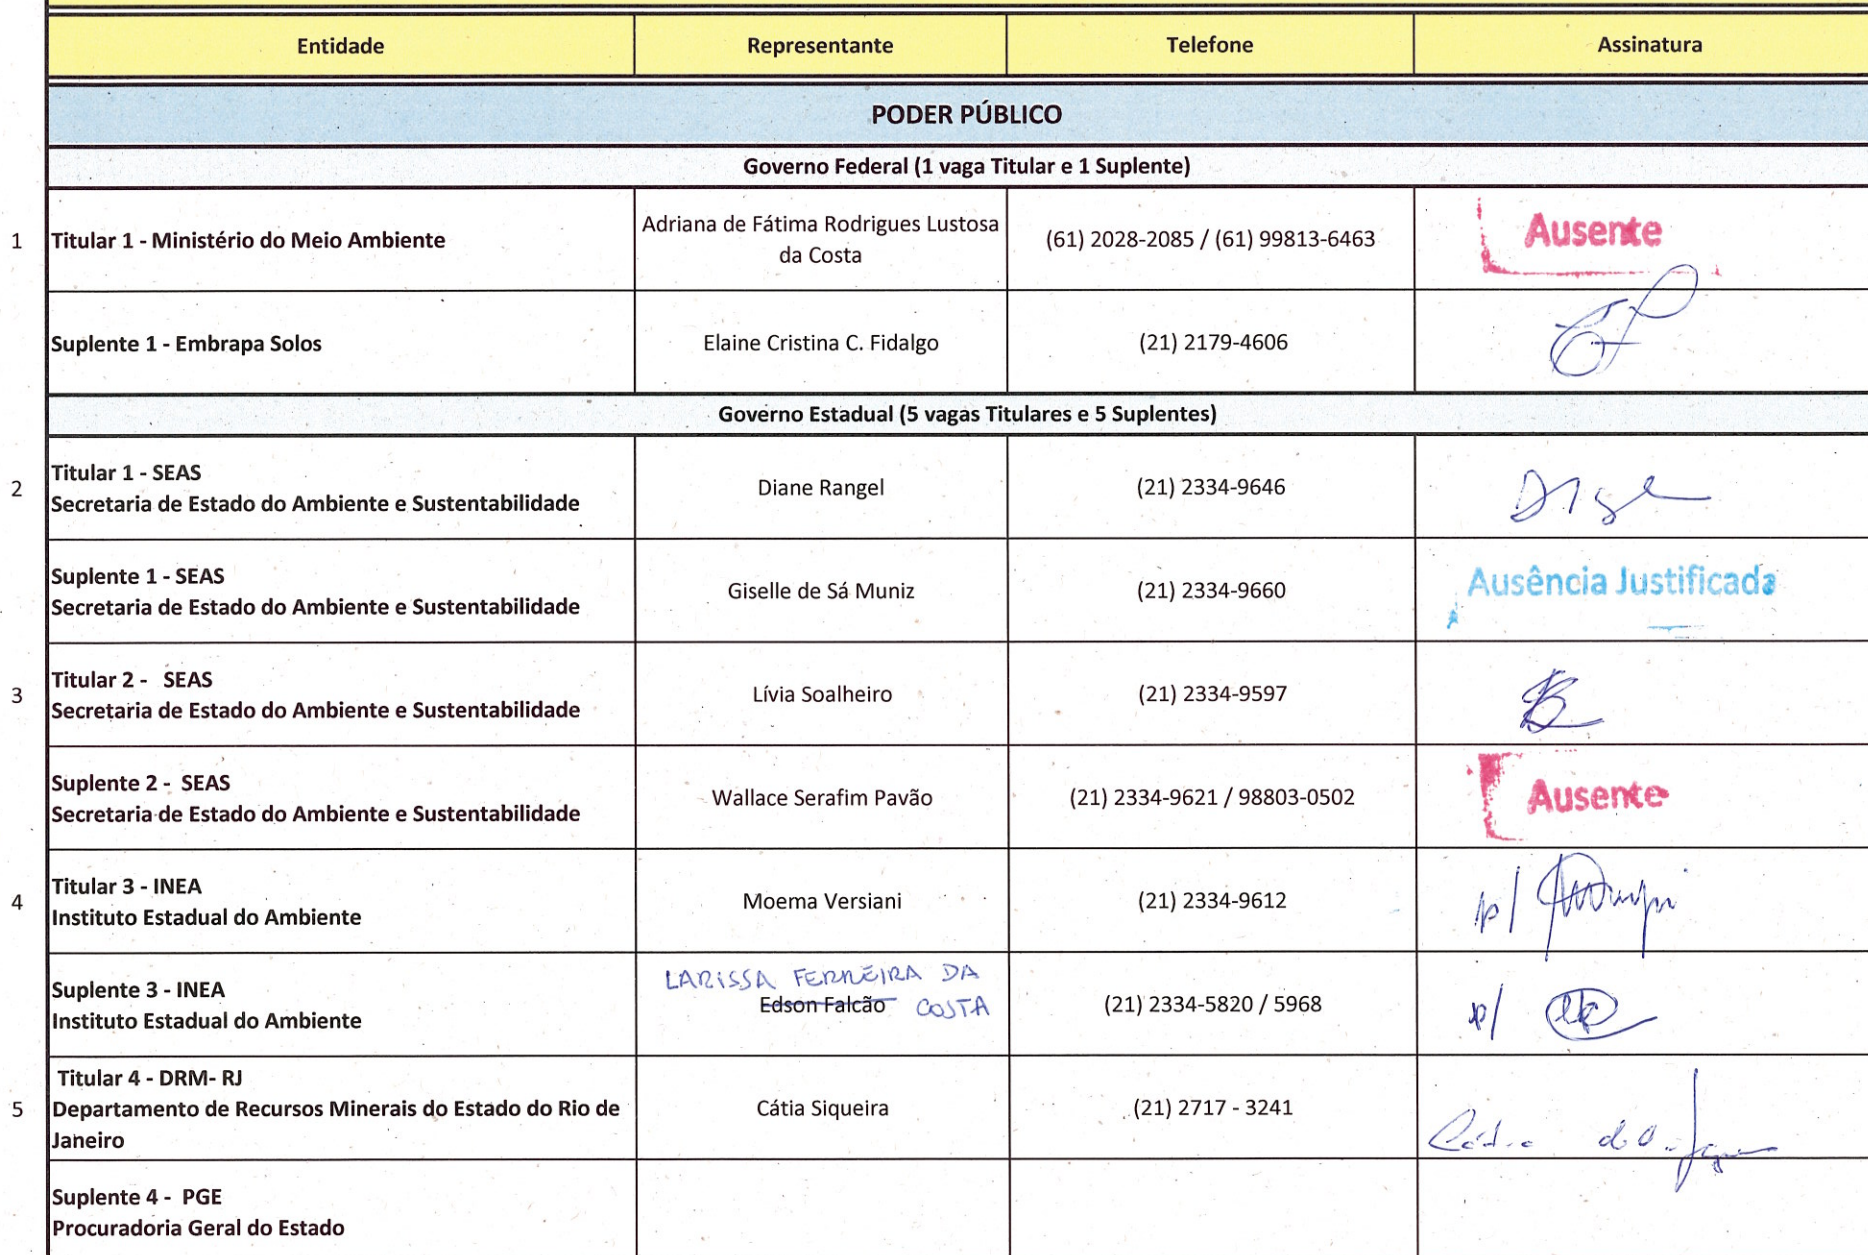 Entidade Representante Telefone Assinatura
PODER PÚBLICO
Governo Federal (1 vaga Titular e 1 Suplente)
1 Titular 1 - Ministério do Meio Ambiente Adriana de Fátima Rodrigues Lustosa
da Costa (61) 2028-2085 / (61) 99813-6463 Ausente
Suplente 1 - Embrapa Solos Elaine Cristina C. Fidalgo (21) 2179-4606
Governo Estadual (5 vagas Titulares e 5 Suplentes)
2 Titular 1 - SEAS
Secretaria de Estado do Ambiente e Sustentabilidade Diane Rangel (21) 2334-9646
Suplente 1 - SEAS
Secretaria de Estado do Ambiente e Sustentabilidade Giselle de Sá Muniz (21) 2334-9660 Ausência Justificada
3 Titular 2 - SEAS
Secretaria de Estado do Ambiente e Sustentabilidade Lívia Soalheiro (21) 2334-9597
Suplente 2 - SEAS
Secretaria de Estado do Ambiente e Sustentabilidade Wallace Serafim Pavão (21) 2334-9621 / 98803-0502 Ausente
4 Titular 3 - INEA
Instituto Estadual do Ambiente Moema Versiani (21) 2334-9612 p/
Suplente 3 - INEA
Instituto Estadual do Ambiente LARISSA FERREIRA DA
Edson Falcão COSTA (21) 2334-5820 / 5968 p/
5 Titular 4 - DRM- RJ
Departamento de Recursos Minerais do Estado do Rio de
Janeiro Cátia Siqueira (21) 2717 - 3241
Suplente 4 - PGE
Procuradoria Geral do Estado